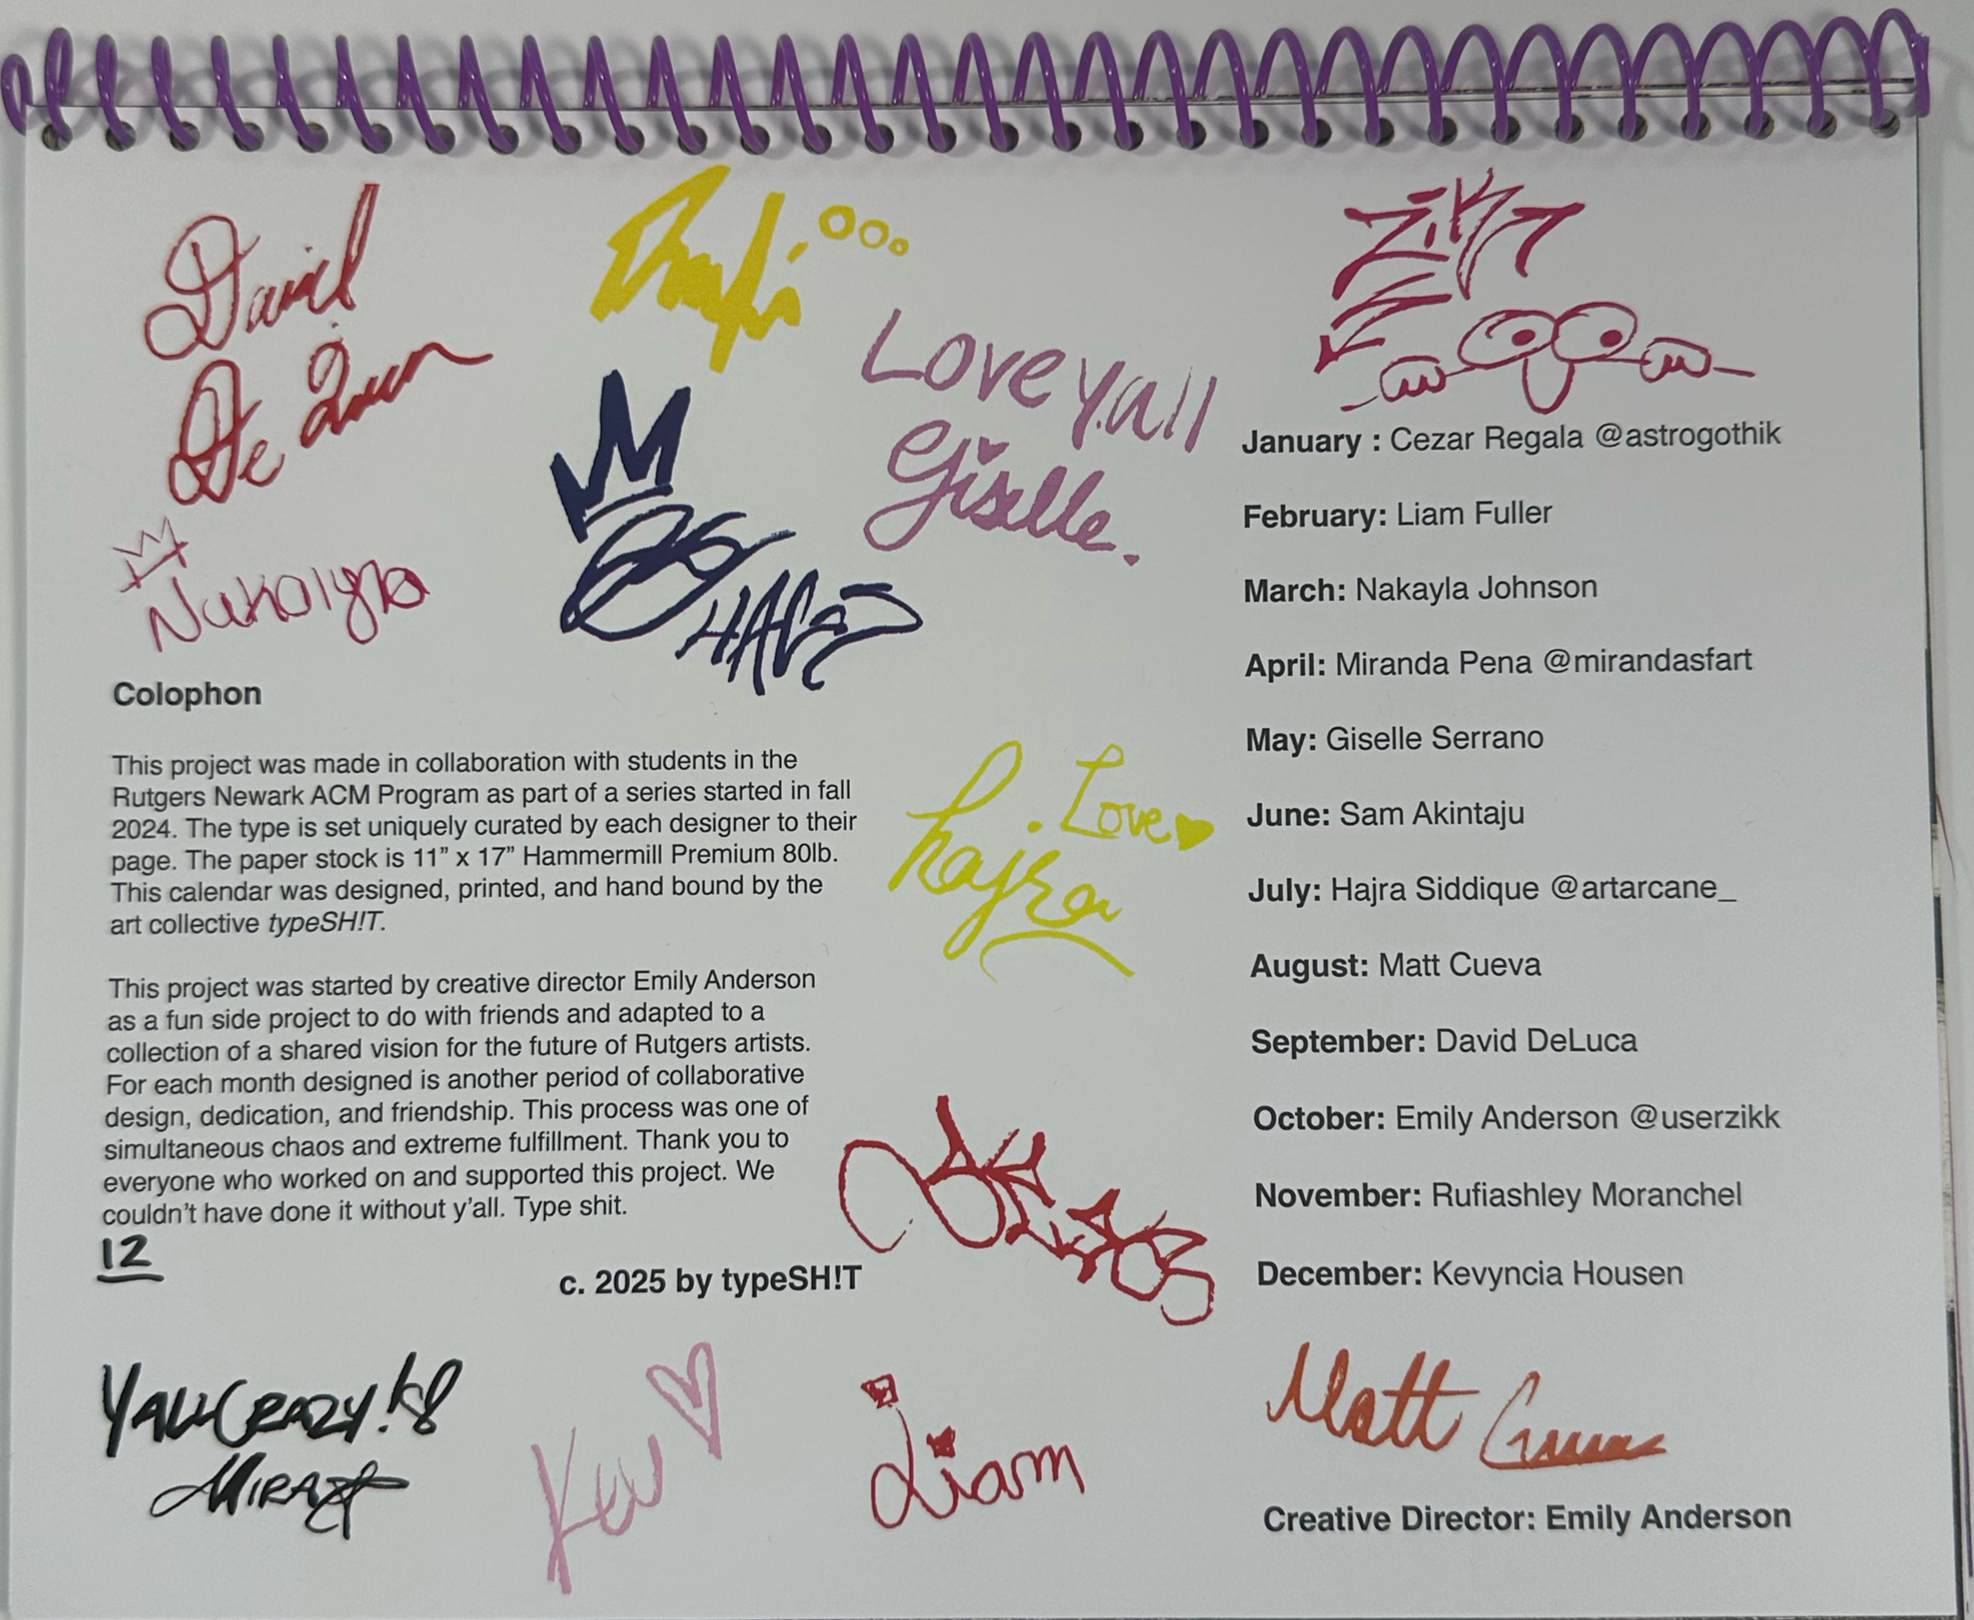 David
De Luca
Rufi
Love y.all
Giselle.
ZiK
Nakayla
Colophon
This project was made in collaboration with students in the
Rutgers Newark ACM Program as part of a series started in fall
2024. The type is set uniquely curated by each designer to their
page. The paper stock is 11” x 17” Hammermill Premium 80lb.
This calendar was designed, printed, and hand bound by the
art collective typeSH!T.
This project was started by creative director Emily Anderson
as a fun side project to do with friends and adapted to a
collection of a shared vision for the future of Rutgers artists.
For each month designed is another period of collaborative
design, dedication, and friendship. This process was one of
simultaneous chaos and extreme fulfillment. Thank you to
everyone who worked on and supported this project. We
couldn’t have done it without y’all. Type shit.
12
c. 2025 by typeSH!T
Love
hajra
January : Cezar Regala @astrogothik
February: Liam Fuller
March: Nakayla Johnson
April: Miranda Pena @mirandasfart
May: Giselle Serrano
June: Sam Akintaju
July: Hajra Siddique @artarcane_
August: Matt Cueva
September: David DeLuca
October: Emily Anderson @userzikk
November: Rufiashley Moranchel
December: Kevyncia Housen
YALL CRAZY!
Kev
Liam
Matt Cueva
Creative Director: Emily Anderson